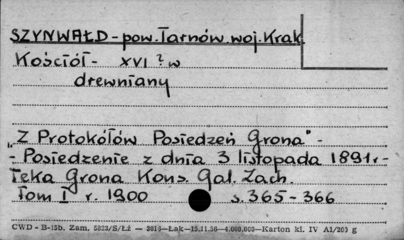 SZYNWAŁD - pow. Tarnów. woj. Krak.
Kościół - XVI ? w
drewniany
„Z Protokółów Posiedzeń Grona" -
- Posiedzenie z dnia 3 listopada 1891 r -
Teka Grona Kons. Gal. Zach.
tom I r. 1900 s. 365 - 366
CWD - B-15b. Zam. 5823/S/Łż — 3016 — Łąk — 15.11.56 — 4.000.000 — Karton kl. IV A1/200 g